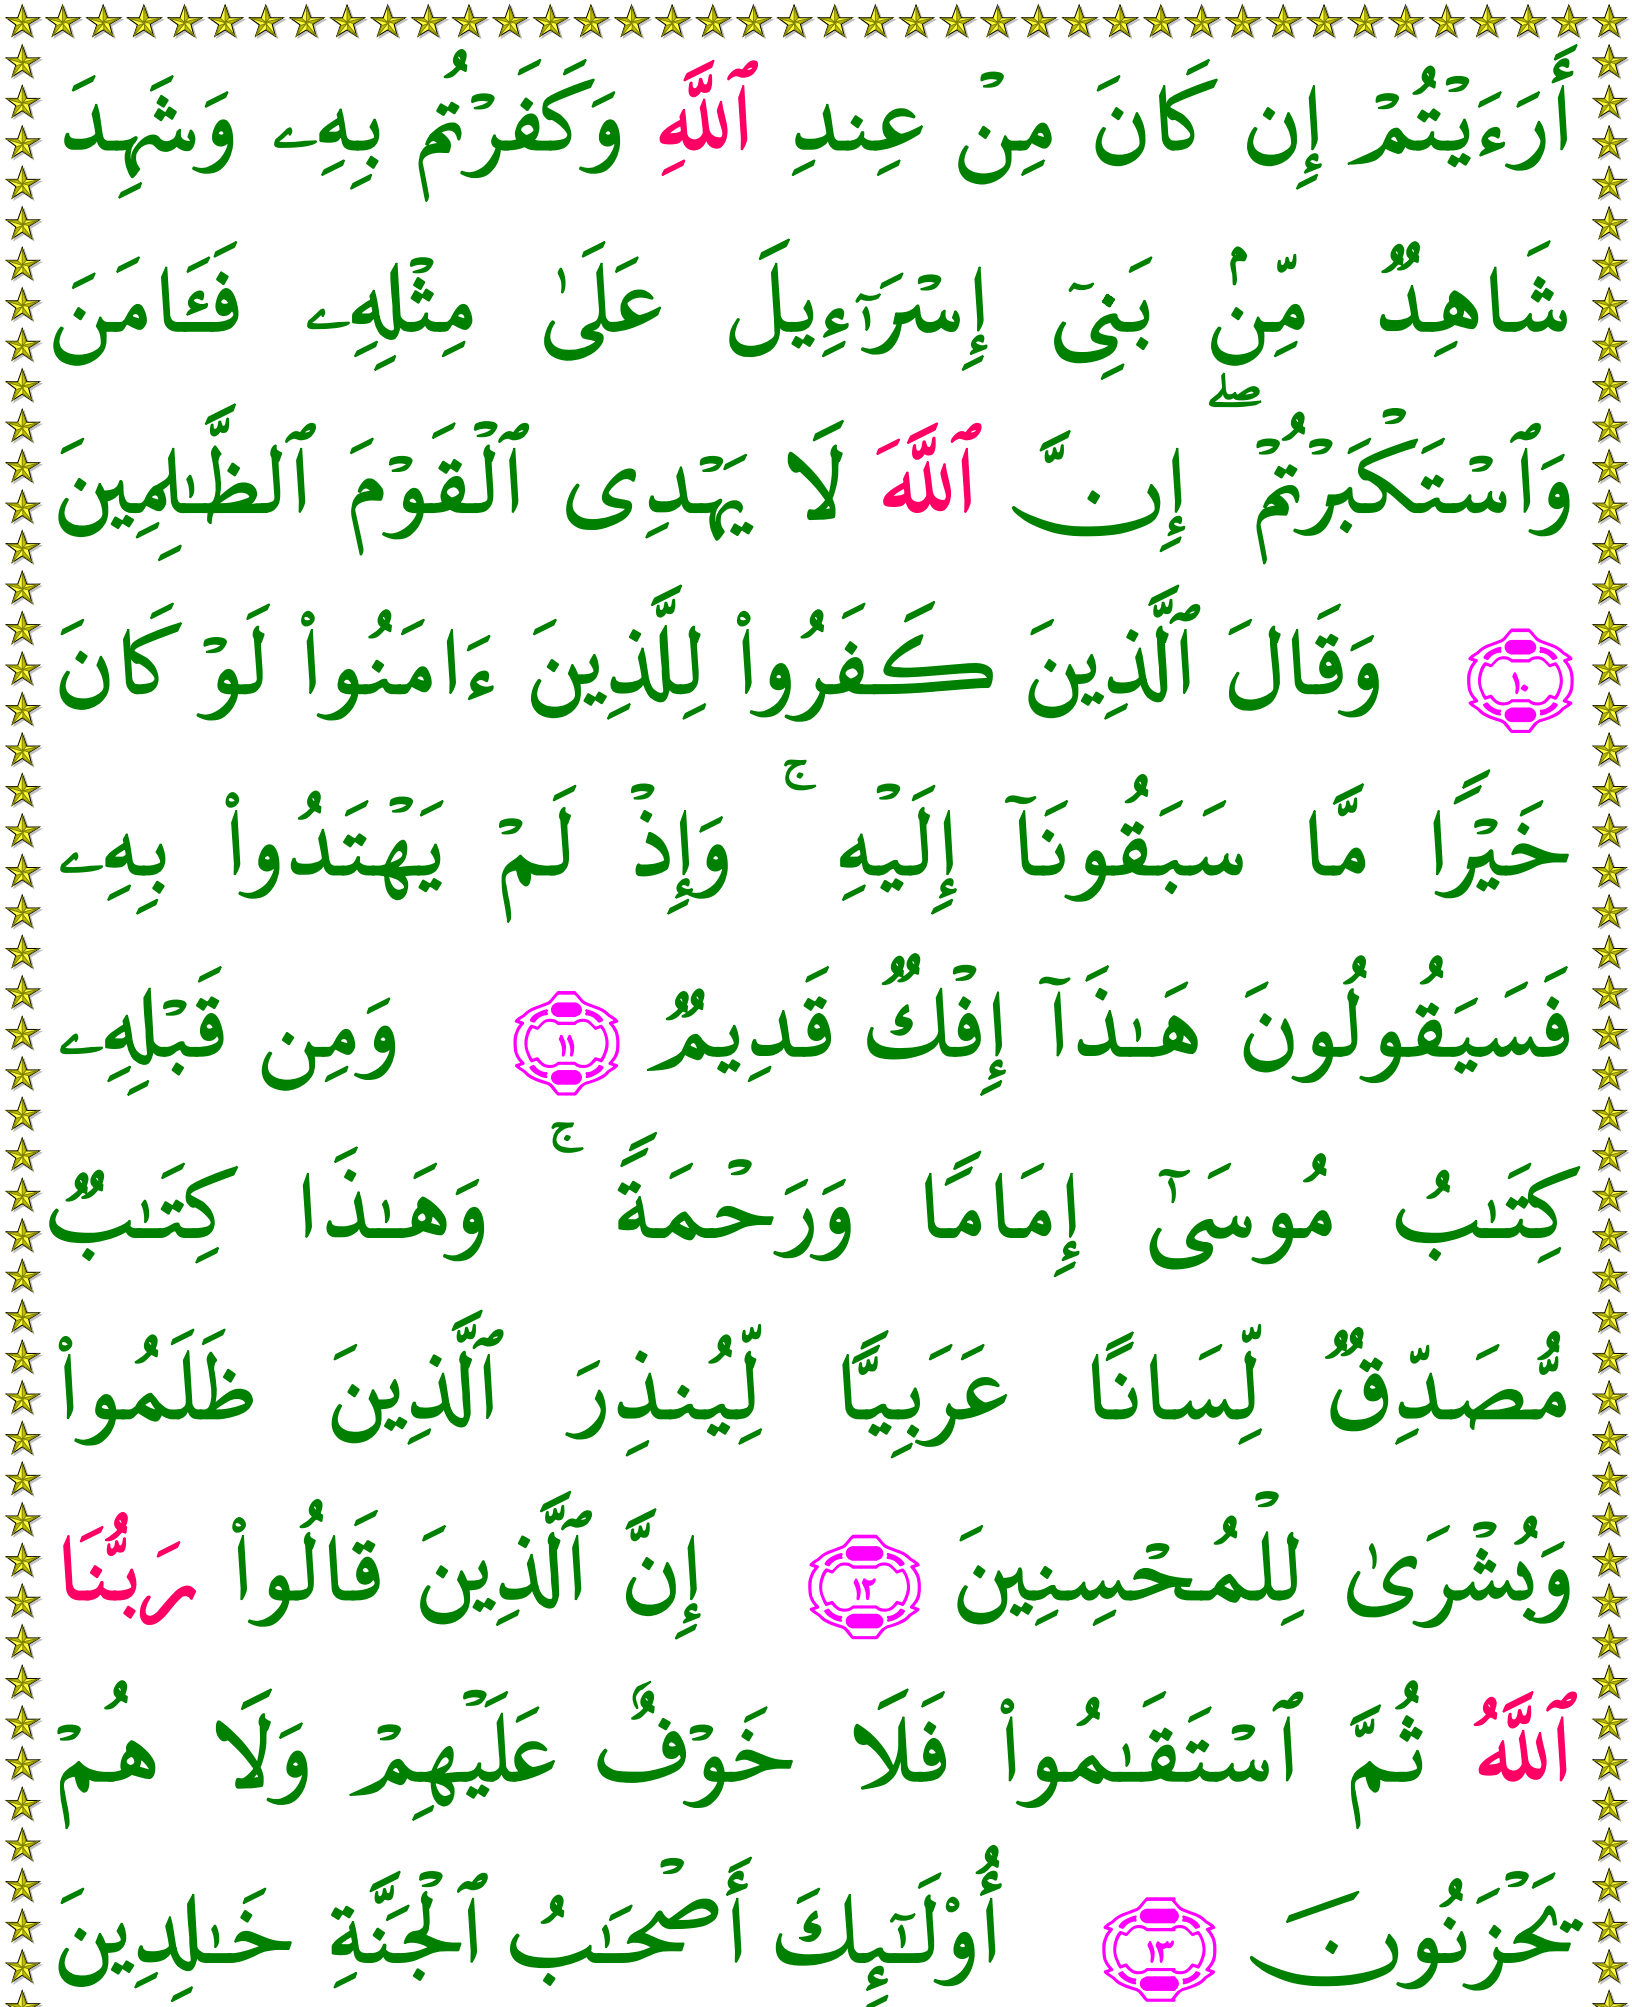 أَرَءَيْتُمْ إِن كَانَ مِنْ عِندِ ٱللَّهِ وَكَفَرْتُم بِهِۦ وَشَهِدَ
شَاهِدٌ مِّنۢ بَنِىٓ إِسْرَٰٓءِيلَ عَلَىٰ مِثْلِهِۦ فَـَٔامَنَ
وَٱسْتَكْبَرْتُمْ ۖ إِنَّ ٱللَّهَ لَا يَهْدِى ٱلْقَوْمَ ٱلظَّـٰلِمِينَ
١٠ وَقَالَ ٱلَّذِينَ كَفَرُوا۟ لِلَّذِينَ ءَامَنُوا۟ لَوْ كَانَ
خَيْرًا مَّا سَبَقُونَآ إِلَيْهِ ۚ وَإِذْ لَمْ يَهْتَدُوا۟ بِهِۦ
فَسَيَقُولُونَ هَـٰذَآ إِفْكٌ قَدِيمٌ ١١ وَمِن قَبْلِهِۦ
كِتَـٰبُ مُوسَىٰٓ إِمَامًا وَرَحْمَةً ۚ وَهَـٰذَا كِتَـٰبٌ
مُّصَدِّقٌ لِّسَانًا عَرَبِيًّا لِّيُنذِرَ ٱلَّذِينَ ظَلَمُوا۟
وَبُشْرَىٰ لِلْمُحْسِنِينَ ١٢ إِنَّ ٱلَّذِينَ قَالُوا۟ رَبُّنَا
ٱللَّهُ ثُمَّ ٱسْتَقَـٰمُوا۟ فَلَا خَوْفٌ عَلَيْهِمْ وَلَا هُمْ
يَحْزَنُونَ ١٣ أُو۟لَـٰٓئِكَ أَصْحَـٰبُ ٱلْجَنَّةِ خَـٰلِدِينَ